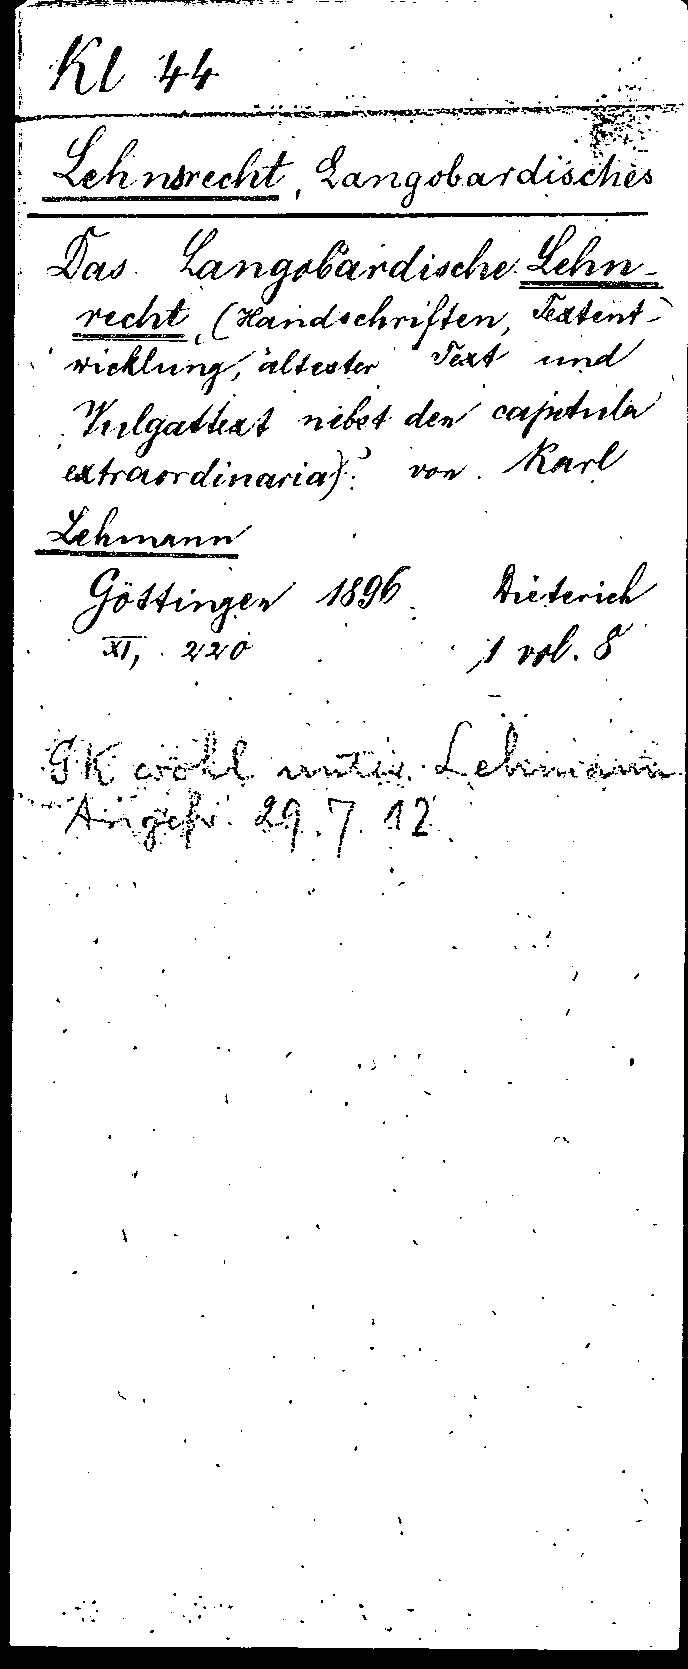 Kl 44
Lehnsrecht, Langobardisches
Das Langobardische Lehn-
recht, (Handschriften, Textent-
wicklung, ältester Text und
Vulgattext nebst den capitula
extraordinaria). von Karl
Lehmann
Göttingen 1896. Dieterich
XI, 220 1 vol. 8
GK wohl unter Lehmann
Angefr. 29.7.12